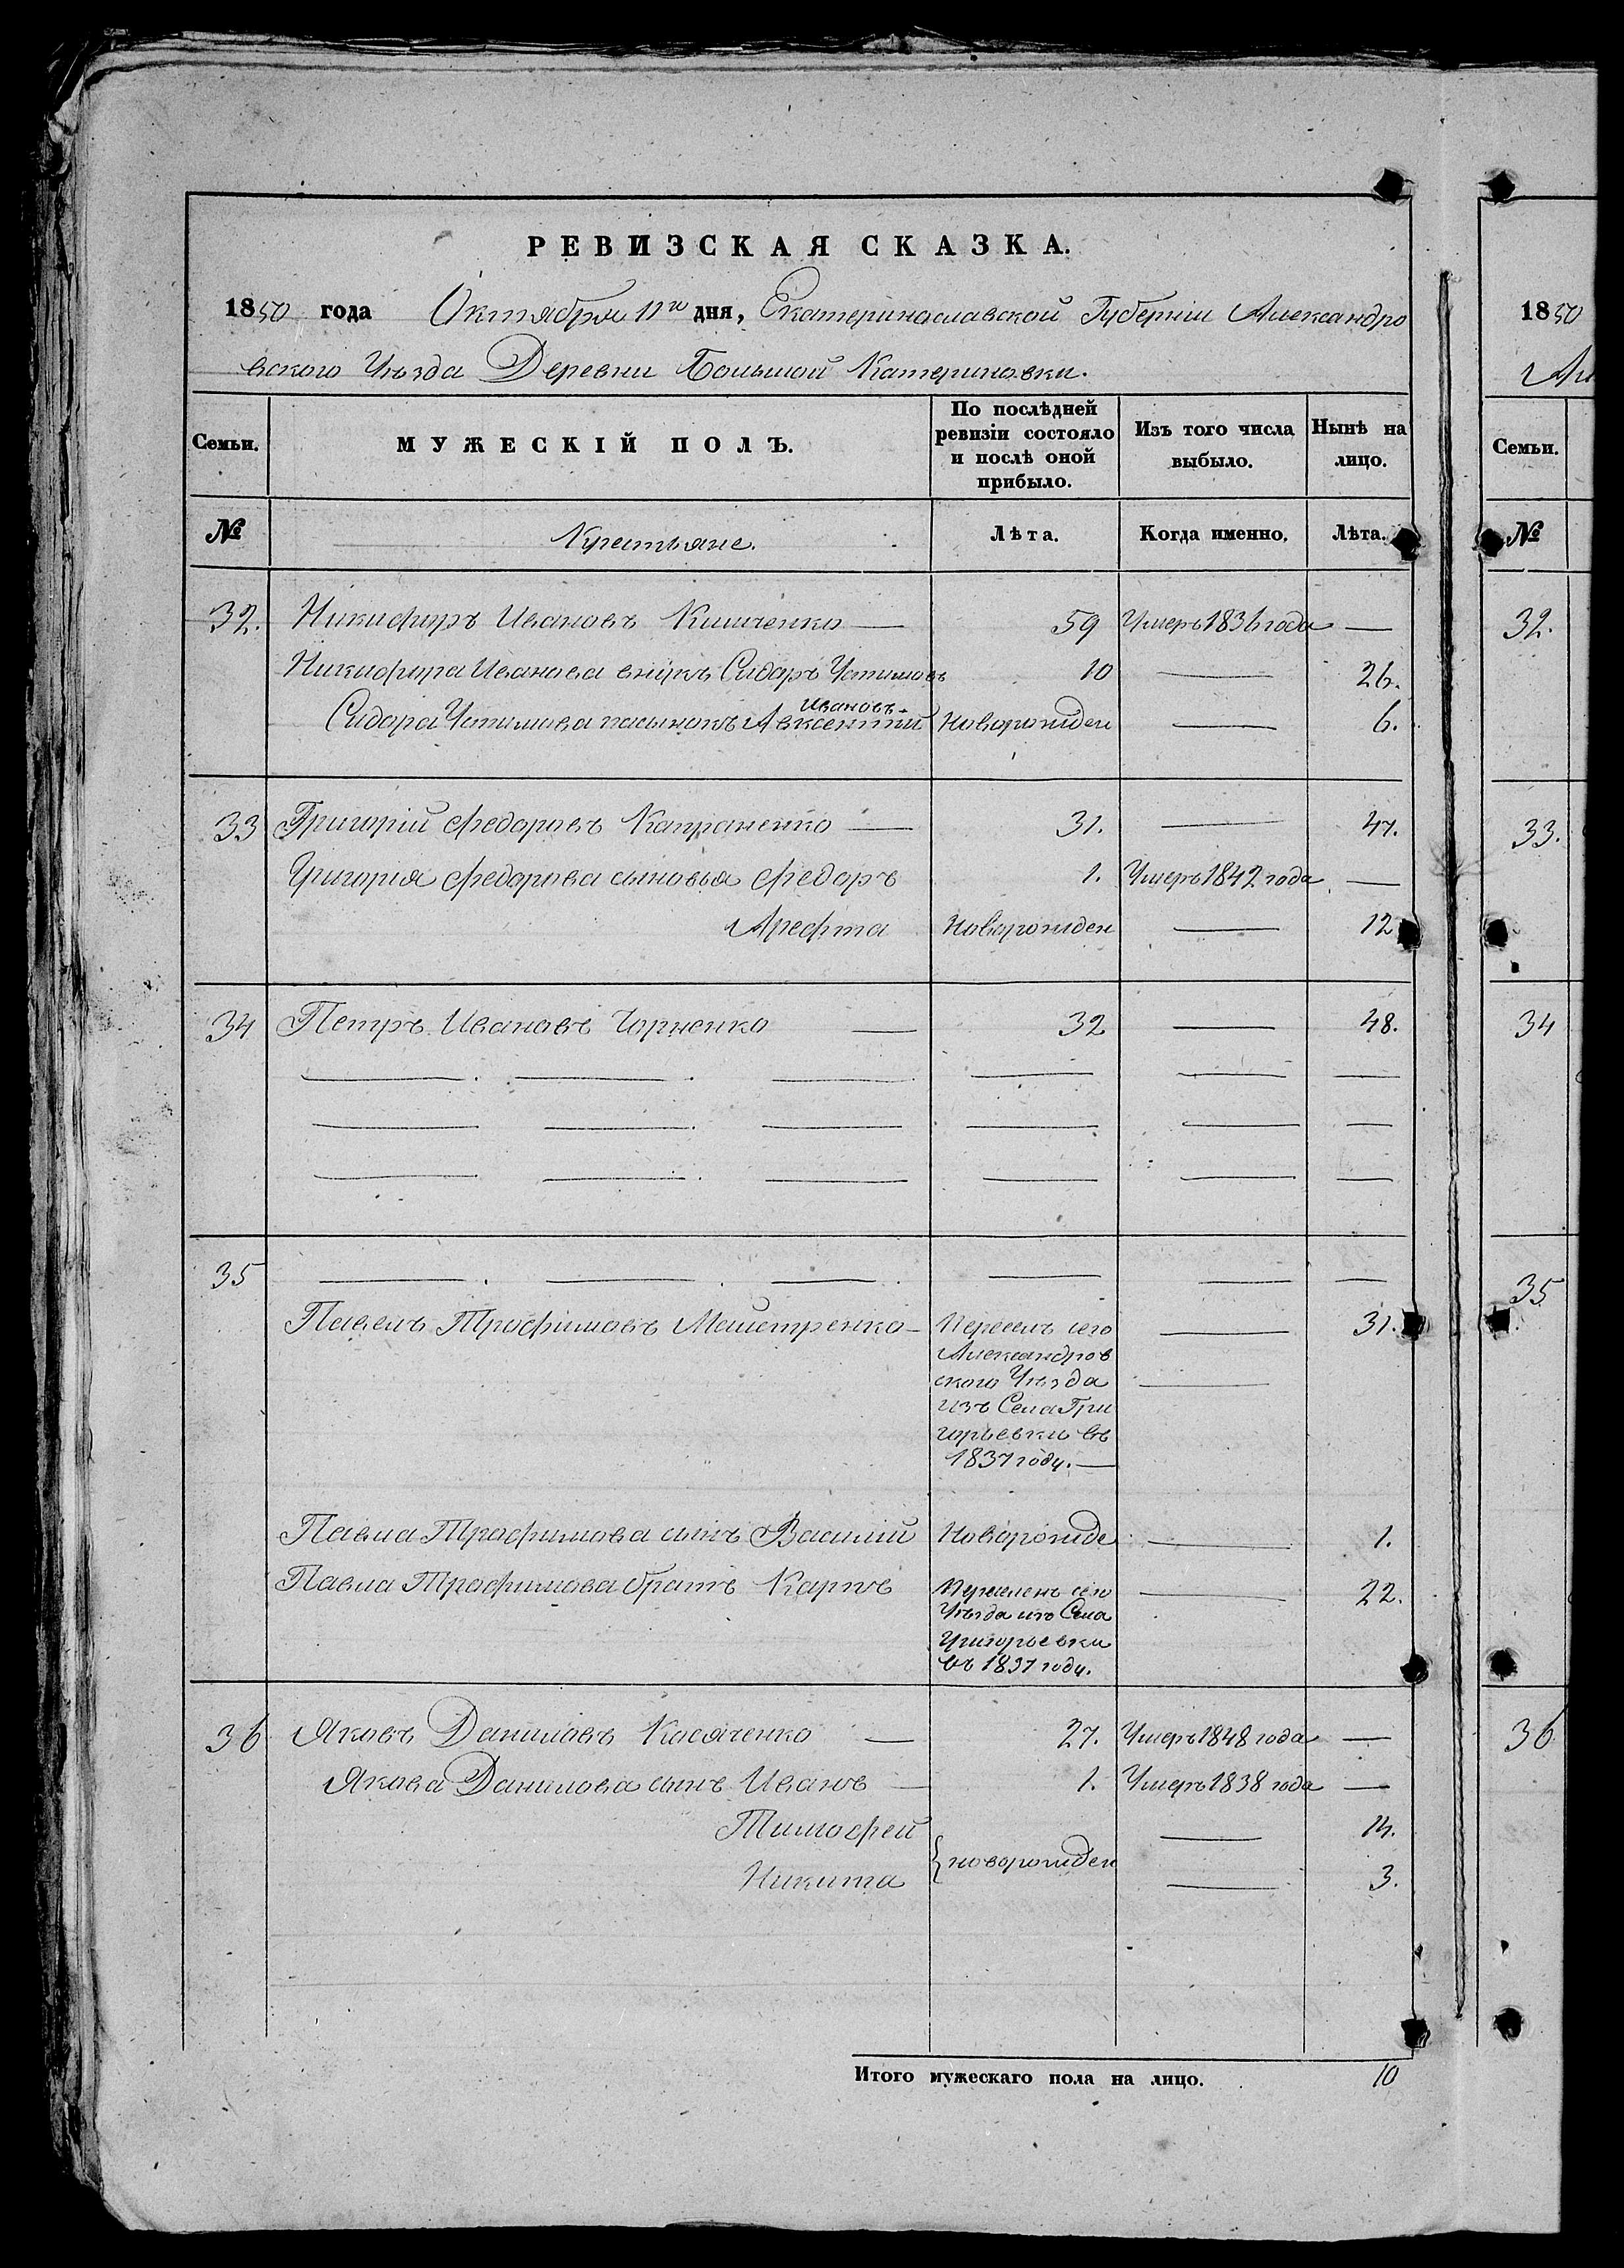 РЕВИЗСКАЯ СКАЗКА.
1850 года Октября 11го дня, Екатеринославской Губерніи Александро
вского Уѣзда Деревни Большой Катериновки.
Семьи.
МУЖЕСКІЙ ПОЛЪ.
По послѣдней
ревизіи состояло
и послѣ оной
прибыло.
Изъ того числа
выбыло.
Нынѣ на
лицо.
№ Крестьяне. Лѣта. Когда именно. Лѣта.
32. Никифоръ Ивановъ Кишченко — 59 Умеръ 1836 года —
Никифора Иванова внукъ Сидоръ Устимовъ 10 — 26.
Ивановъ
Сидора Устимова пасынокъ Авксентий Новорожден — 6.
33 Григорій Федоровъ Капраненко — 31. — 47.
Григорія Федорова сыновья Федоръ 1. Умеръ 1842 года —
Арефта Новорожден — 12
34 Петръ Ивановъ Чорненко — 32 — 48.
35
Павелъ Трофимовъ Маистренко — Пересел сего — 31.
Александров
ского Уѣзда —
изъ Села Гри
горьевки въ
1837 году. —
Павла Трофимова сынъ Василій Новорожде — 1.
Павла Трофимова братъ Карпъ Переселенъ сего — 22.
Уѣзда изъ Села
Григорьевки
въ 1837 году.
36 Яковъ Даниловъ Косяченко — 27. Умеръ 1848 года —
Якова Данилова сынъ Иванъ — 1. Умеръ 1838 года —
Тимофей — 14.
{новорожден
Никита — 3.
Итого мужескаго пола на лицо. 10
1850
Ал
Семьи.
№
32.
33.
34
35
36